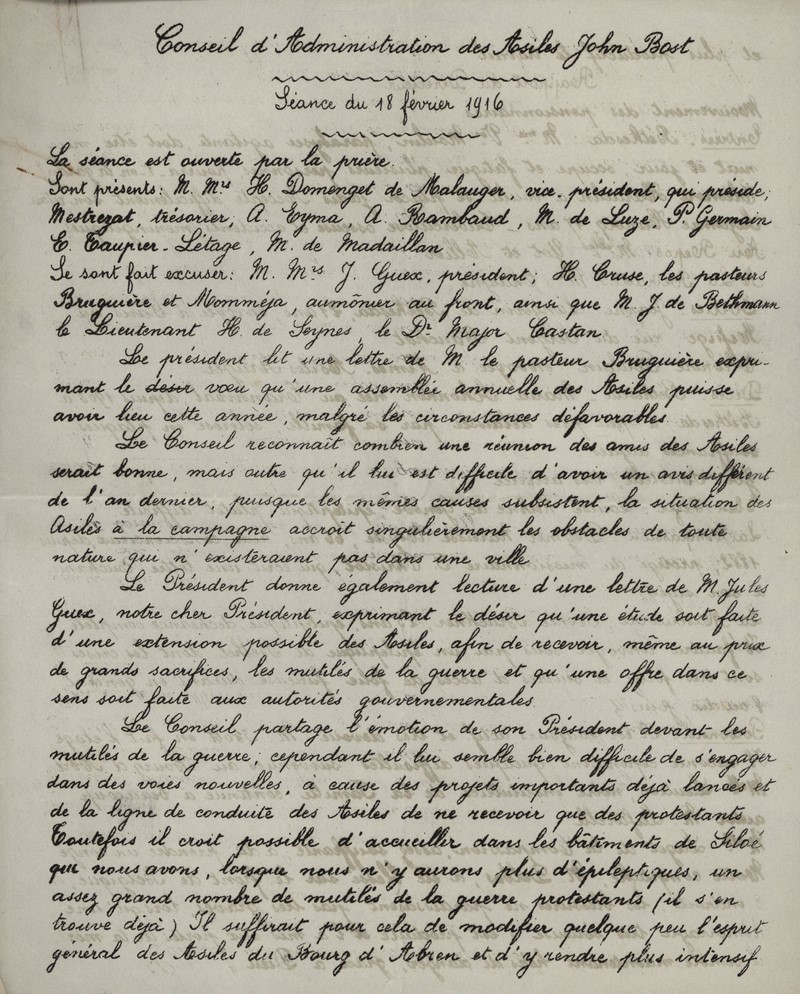 Conseil d'Administration des Asiles John Bost
Séance du 18 février 1916
La séance est ouverte par la prière.
Sont présents: M. Mrs H. Domenget de Malauger, vice-président, qui préside,
Mestrezat, trésorier, A. Eyma, A. Rambaud, M. de Luze, P. Germain
E. Taupier-Létage, M. de Madaillan
Se sont fait excuser: M. Mrs J. Guex, président; H. Cruse, les pasteurs
Bruguière et Momméja, aumônier au front, ainsi que M. J. de Bethmann
le Lieutenant H. de Seynes, le Dr Major Castan
Le président lit une lettre de M le pasteur Bruguière expri-
mant le désir vœu qu'une assemblée annuelle des Asiles puisse
avoir lieu cette année, malgré les circonstances défavorables
Le Conseil reconnaît combien une réunion des amis des Asiles
serait bonne, mais outre qu'il lui est difficile d'avoir un avis différent
de l'an dernier, puisque les mêmes causes subsistent, la situation des
Asiles à la campagne accroît singulièrement les obstacles de toute
nature qui n'existeraient pas dans une ville
Le Président donne également lecture d'une lettre de M. Jules
Guex, notre cher Président, exprimant le désir qu'une étude soit faite
d'une extension possible des Asiles, afin de recevoir, même au prix
de grands sacrifices, les mutilés de la guerre et qu'une offre dans ce
sens soit faite aux autorités gouvernementales
Le Conseil partage l'émotion de son Président devant les
mutilés de la guerre; cependant il lui semble bien difficile de s'engager
dans des voies nouvelles, à cause des projets importants déjà lancés et
de la ligne de conduite des Asiles de ne recevoir que des protestants
Toutefois il croit possible d'accueillir dans les bâtiments de Siloé
que nous avons, lorsque nous n'y aurons plus d'épileptiques, un
assez grand nombre de mutilés de la guerre protestants (il s'en
trouve déjà) Il suffirait pour cela de modifier quelque peu l'esprit
général des Asiles du Bourg d'Abren et d'y rendre plus intensif